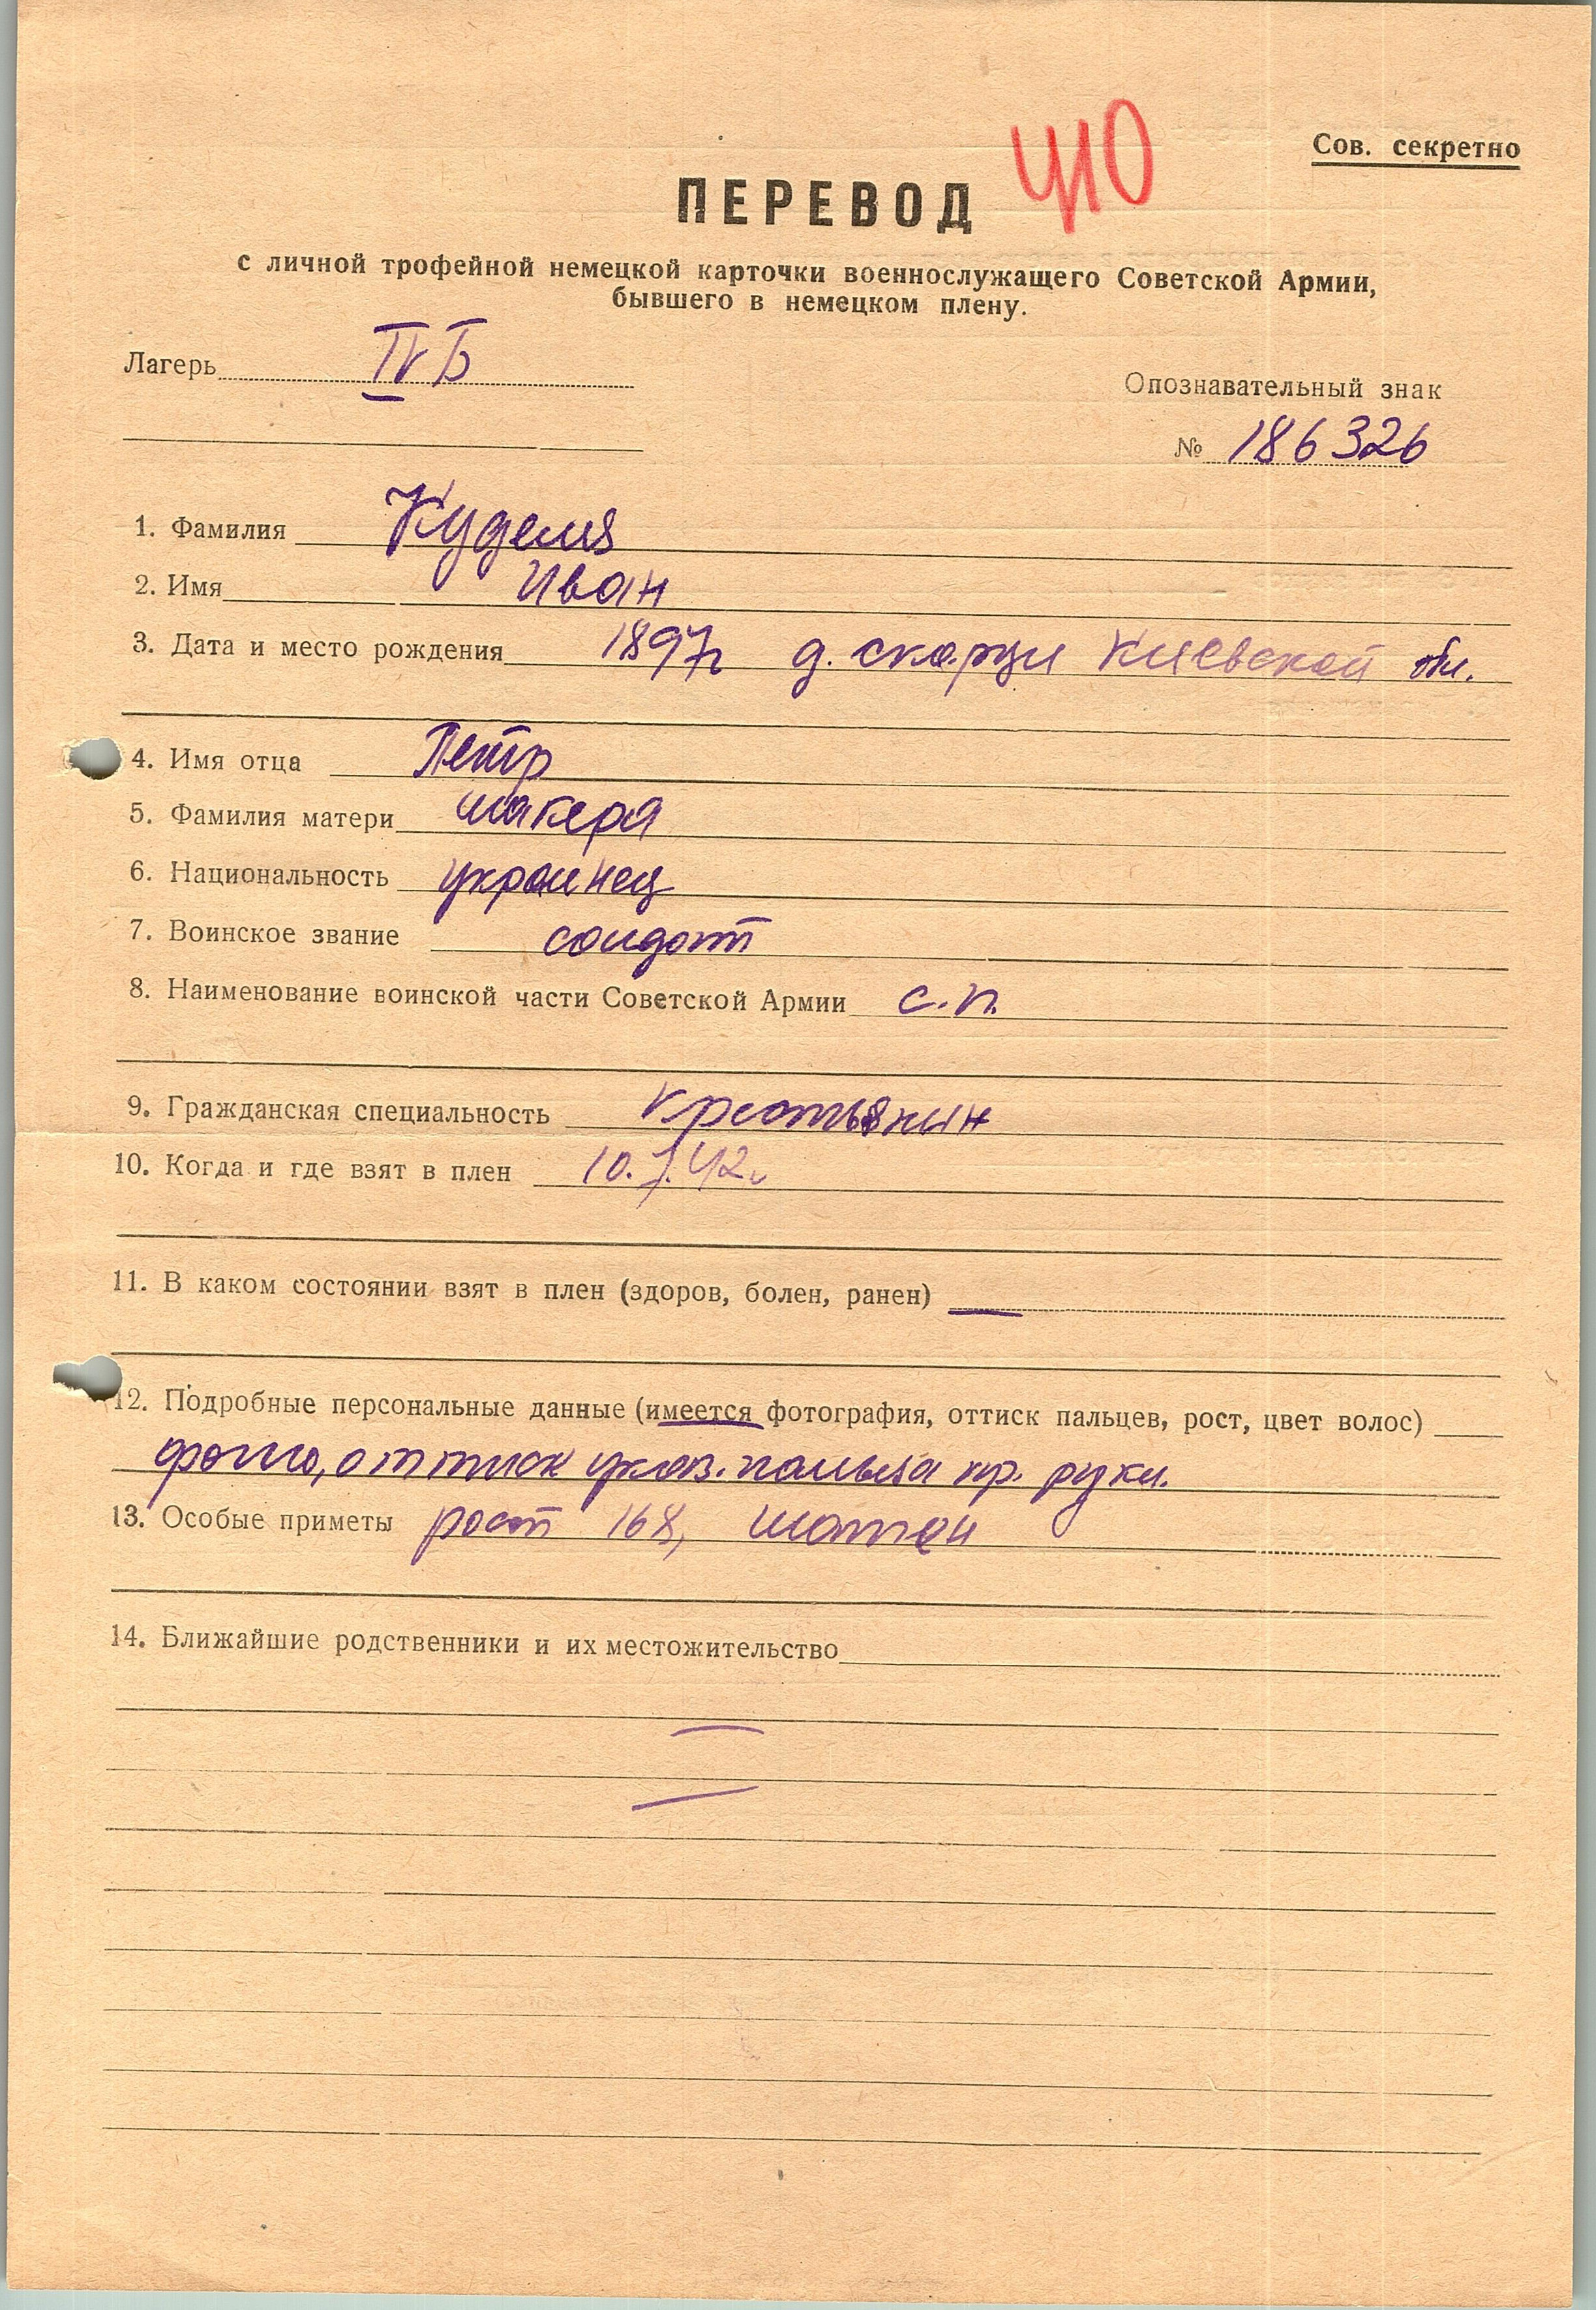 410
Сов. секретно
ПЕРЕВОД
с личной трофейной немецкой карточки военнослужащего Советской Армии,
бывшего в немецком плену.
Лагерь IV Б
Опознавательный знак
№ 186326
1. Фамилия Куделя
2. Имя Иван
3. Дата и место рождения 1897г д. скорци Киевской обл.
4. Имя отца Петр
5. Фамилия матери шакера
6. Национальность украинец
7. Воинское звание солдат
8. Наименование воинской части Советской Армии с.п.
9. Гражданская специальность крестьянин
10. Когда и где взят в плен 10.7.42г
11. В каком состоянии взят в плен (здоров, болен, ранен) —
12. Подробные персональные данные (имеется фотография, оттиск пальцев, рост, цвет волос)
фото, оттиск указ. пальца пр. руки.
13. Особые приметы рост 168, шатен
14. Ближайшие родственники и их местожительство